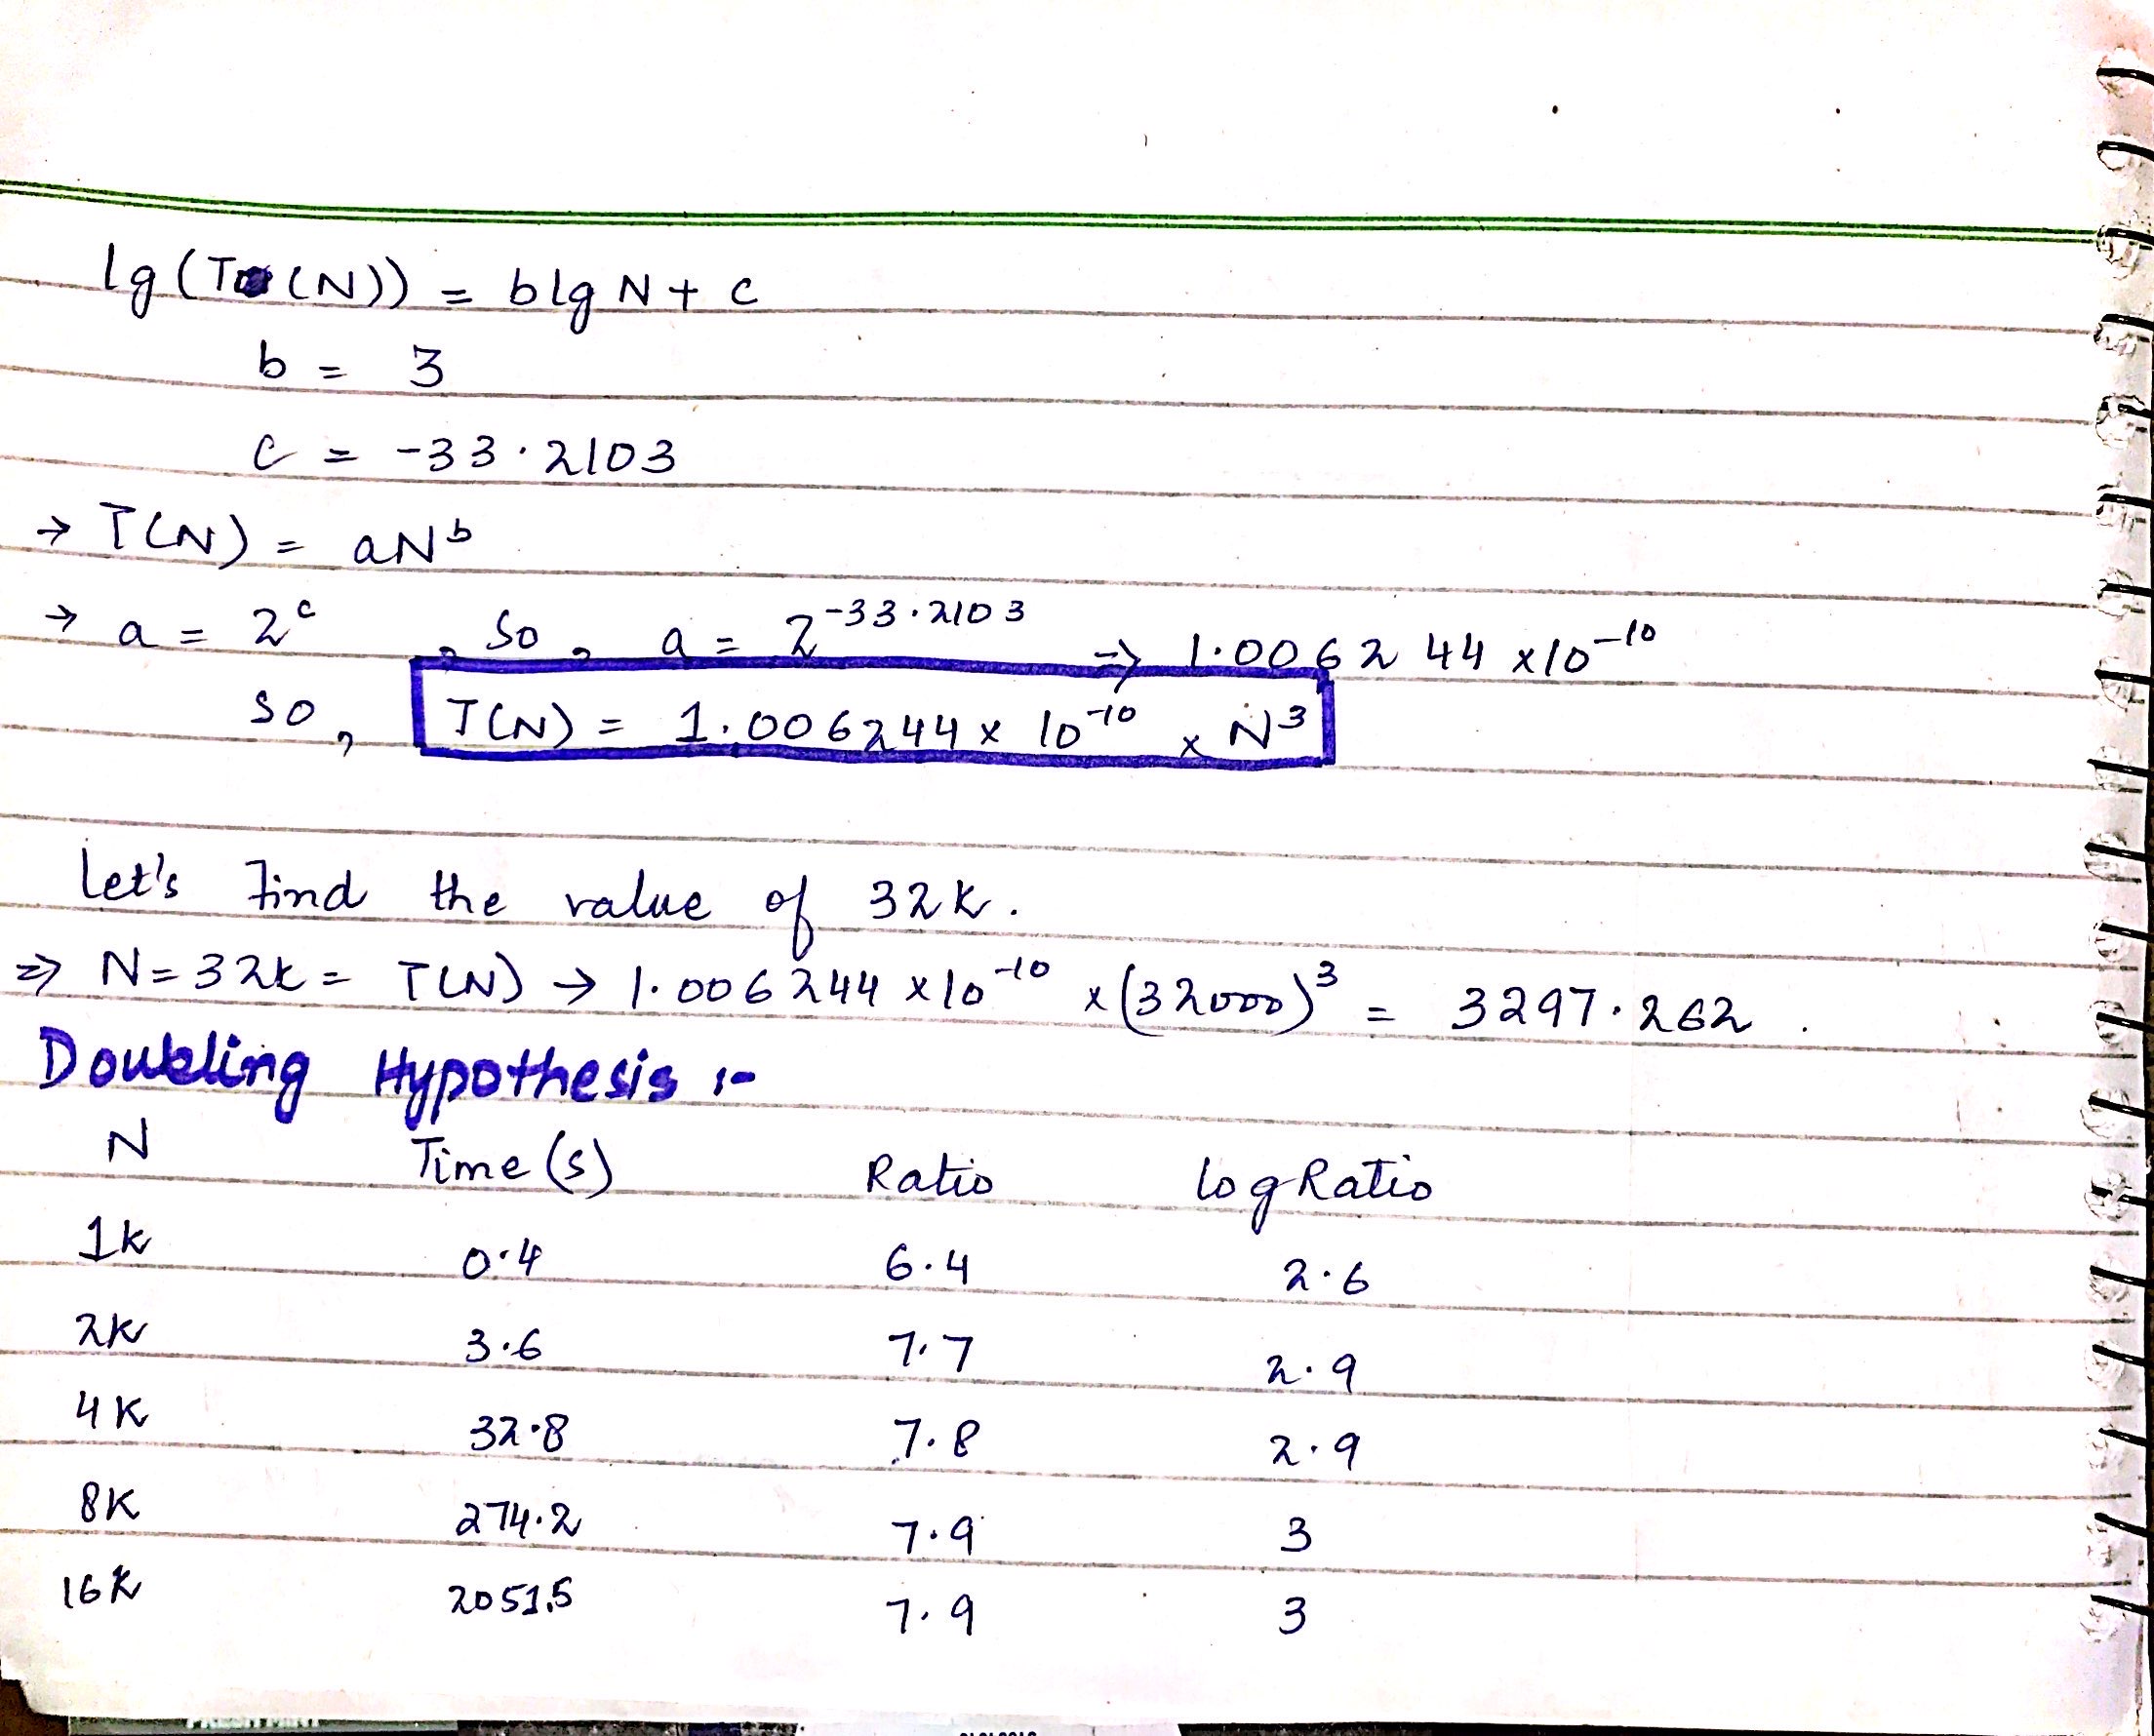 lg (T(N)) = b lg N + c
b = 3
c = -33.2103
→ T(N) = aN^b
→ a = 2^c , so , a = 2^-33.2103 => 1.006244 x10^-10
so, T(N) = 1.006244 x 10^-10 x N^3
Let's find the value of 32k.
=> N=32k = T(N) → 1.006244 x10^-10 x (32000)^3 = 3297.262 .
Doubling Hypothesis :-
N Time (s) Ratio log Ratio
1k 0.4 6.4 2.6
2k 3.6 7.7 2.9
4k 32.8 7.8 2.9
8k 274.2 7.9 3
16k 2051.5 7.9 3